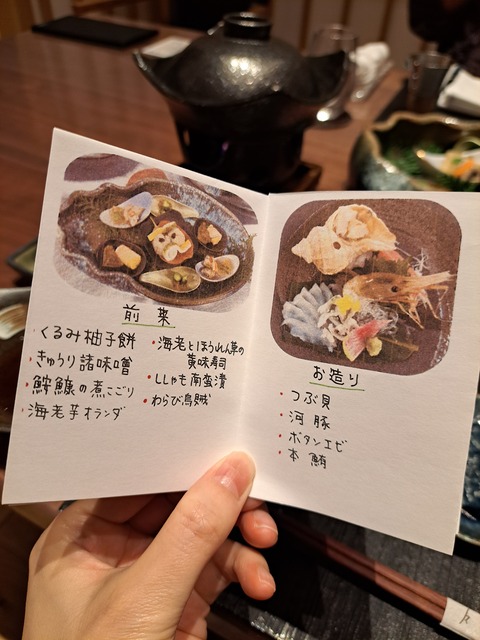 前菜
・くるみ柚子餅
・きゅうり諸味噌
・鮟鱇の煮こごり
・海老芋オランダ
・海老とほうれん草の
黄味寿司
・ししゃも南蛮漬
・わらび烏賊
お造り
・つぶ貝
・河豚
・ボタンエビ
・本鮪